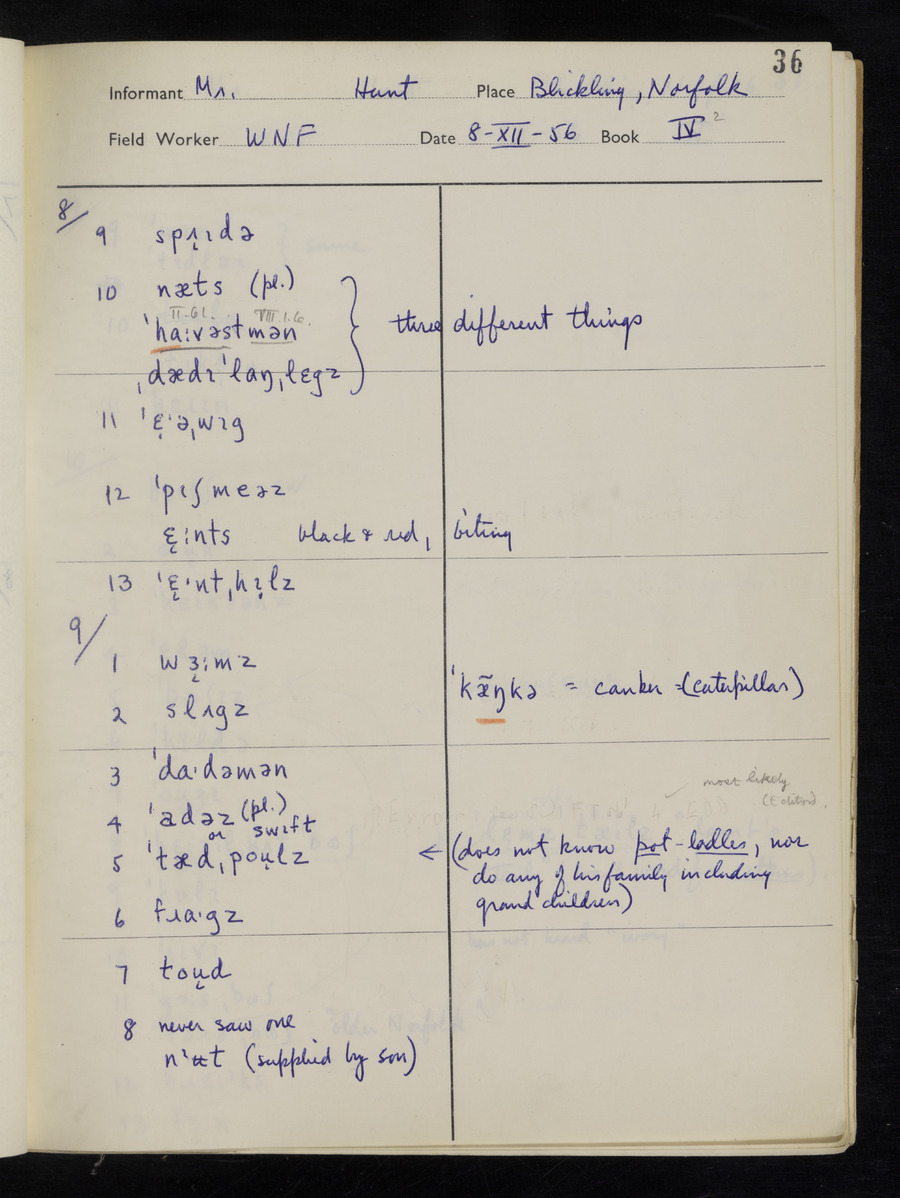 36
Informant Mr. Hunt Place Blickling, Norfolk
Field Worker WNF Date 8-XII-56 Book IV 2
8/
9 spɹ̩ɪdə
10 næts (pl.)
II.6.
VIII.1.6.
ˈhaːvəstmən } three different things
ˌdædɪˈlaŋˌlɛgz
11 ˈɛ̞ˑəˌwɪg
12 ˈpɪʃmeəz
ɛ̞ːnts black & red, biting
13 ˈɛ̞ˑntˌhɪ̞lz
9/
1 wɜ̞ːmz
ˈkæ̃ŋkə = canker =(caterpillar)
2 slʌgz
3 ˈdaˑdəmən
most likely
(Editor).
4 ˈadəz (pl.)
or swɪft
5 ˈtædˌpoʊ̞lz ← (does not know pot-ladles, nor
do any of his family including
grandchildren)
6 fɹaˑgz
7 toʊ̞d
8 never saw one
nˈʉt (supplied by son)